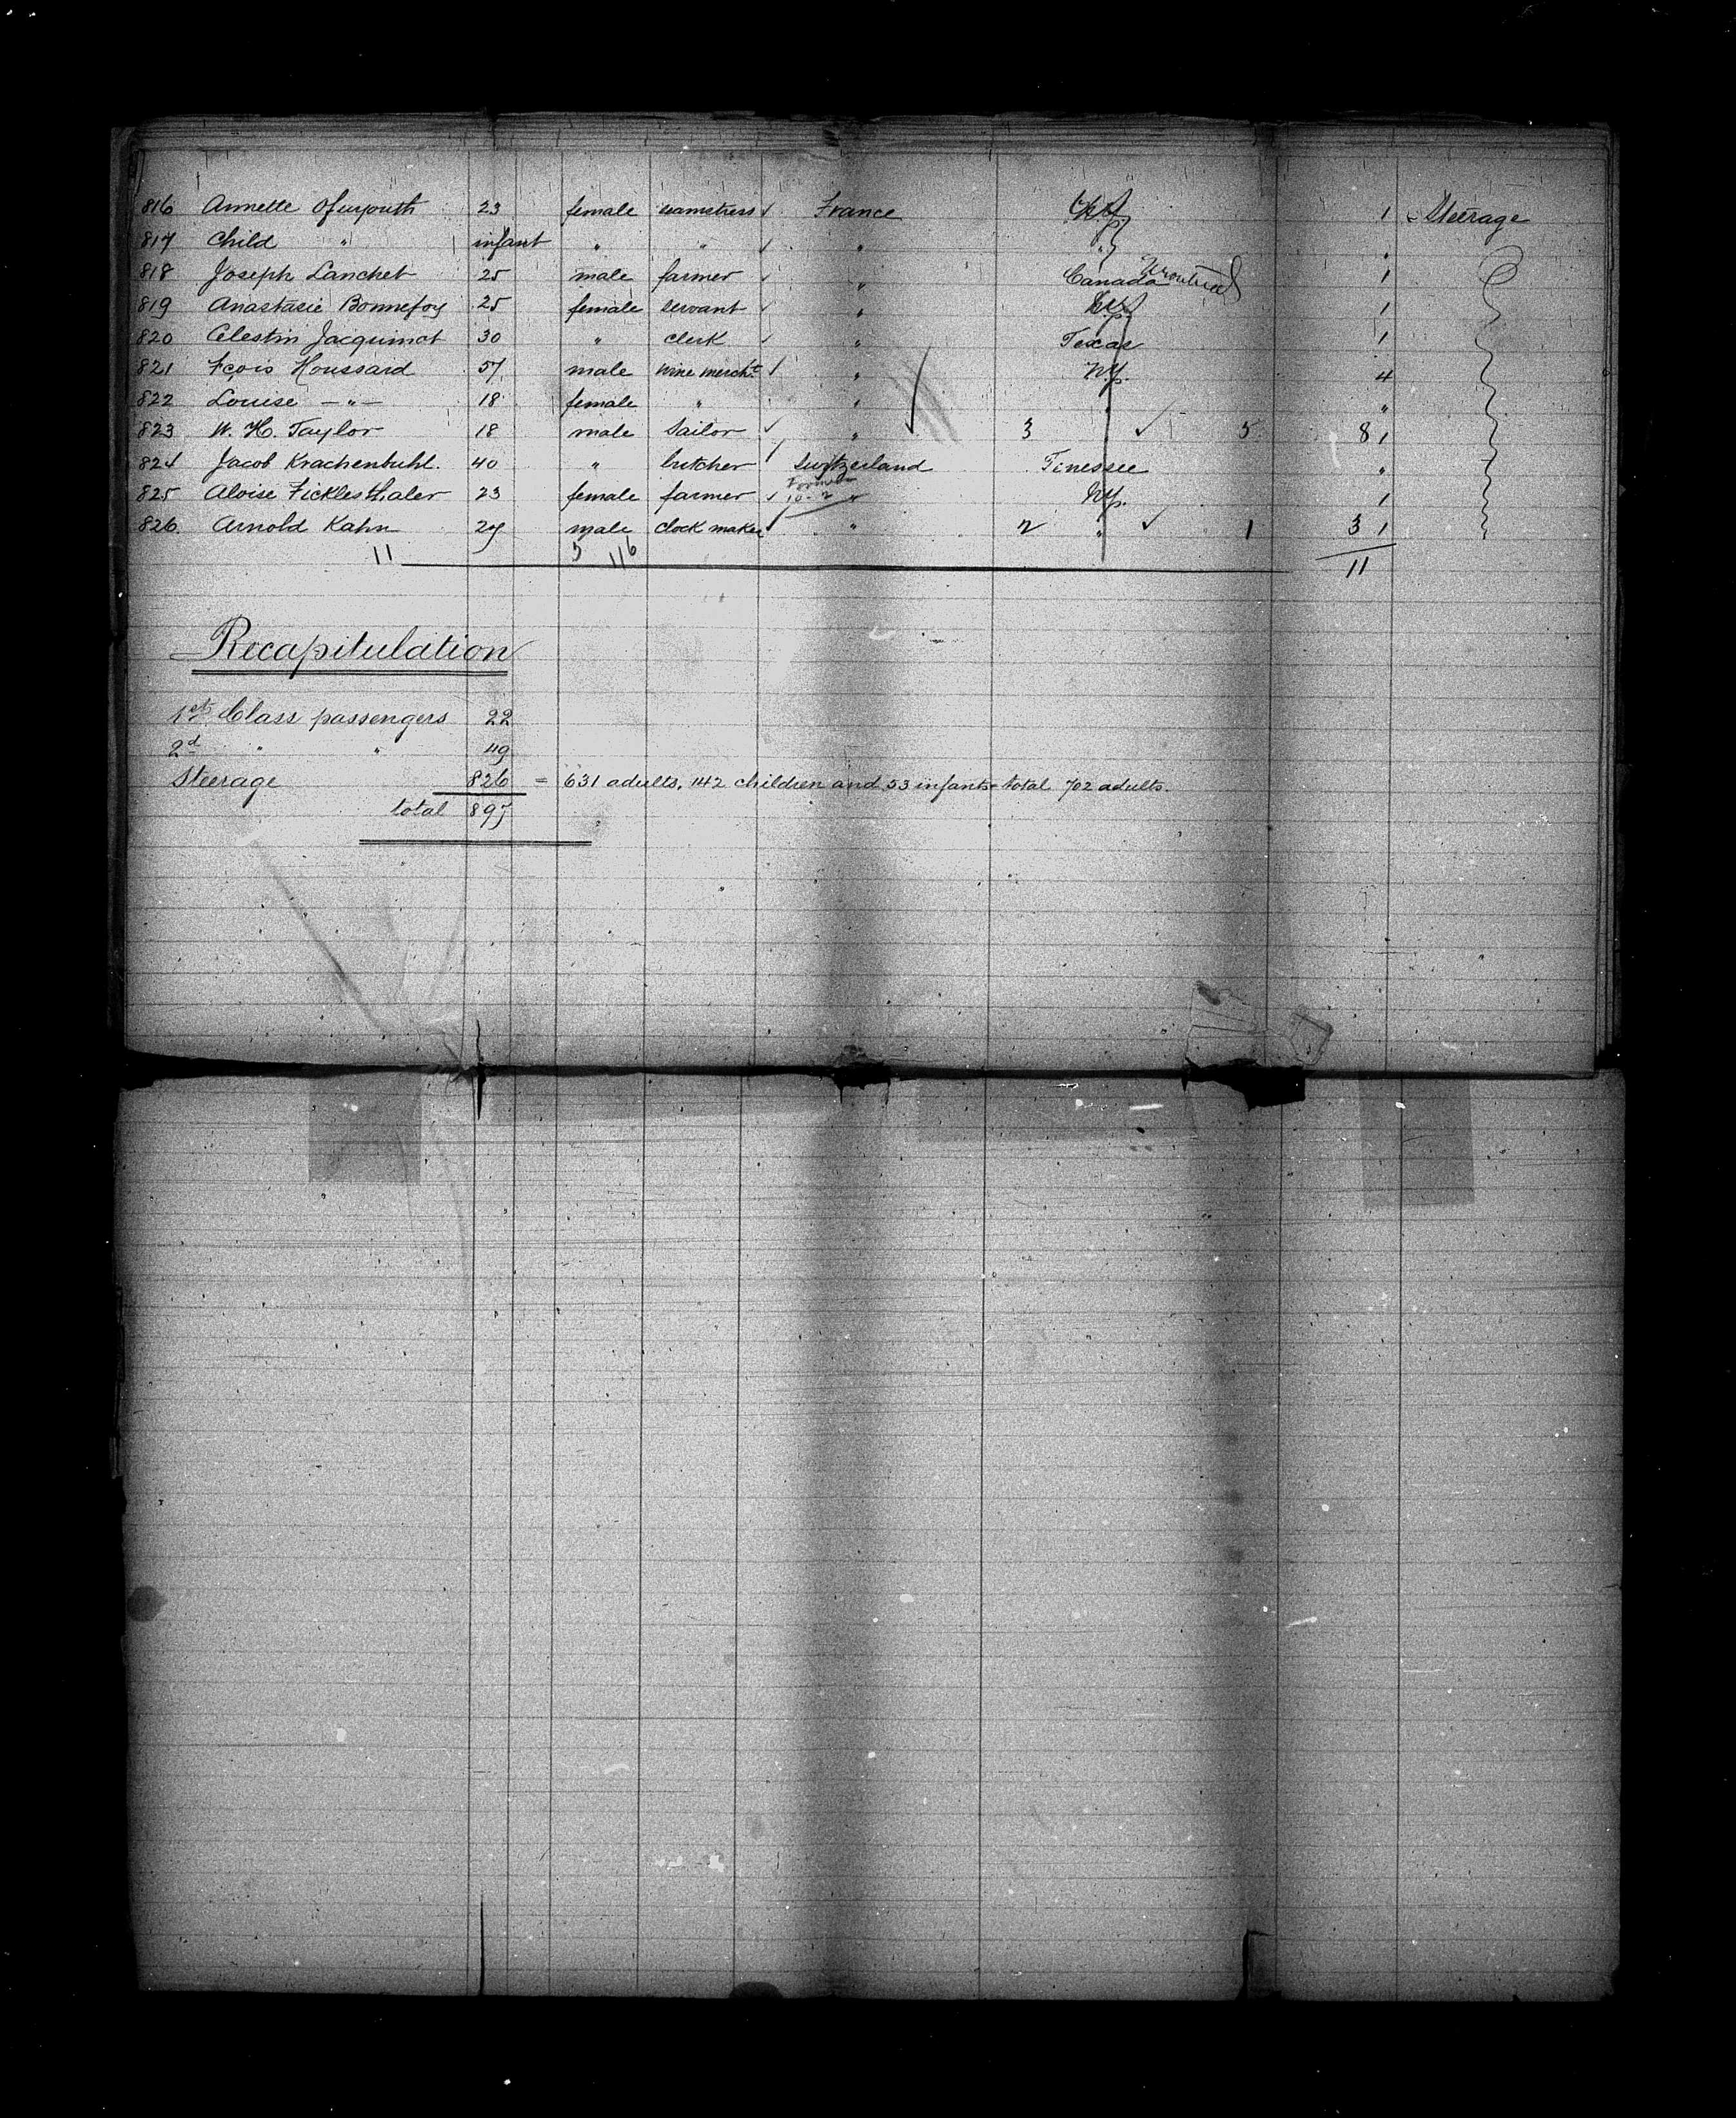 816 Annette Ofuyouth 23 female seamstress ✓ France 1 Steerage
817 Child " infant " " ✓ " " "
818 Joseph Lanchet 25 male farmer ✓ " Canada Montreal 1
819 Anastasie Bonnefoy 25 female servant ✓ " N.y. 1
820 Celestin Jacquinot 30 " clerk ✓ " Texas 1
821 Fçois Houssard 57 male wine mercht ✓ " N.y. 4
822 Louise —"— 18 female " " " "
823 W. H. Taylor 18 male Sailor ✓ " 3 ✓ 5 8 1
824 Jacob Krachenbuhl. 40 " butcher ✓ Switzerland Tinessee "
825 Aloise Ficklesthaler 23 female farmer ✓ 10-2 " N.y. 1
826 Arnold Kahn 27 male clock maker ✓ " 2 " ✓ 1 3 1
11 5 116 11
Recapitulation
1st Class passengers 22
2d " " 49
Steerage 826 = 631 adults, 142 children and 53 infants = total 702 adults.
total 897